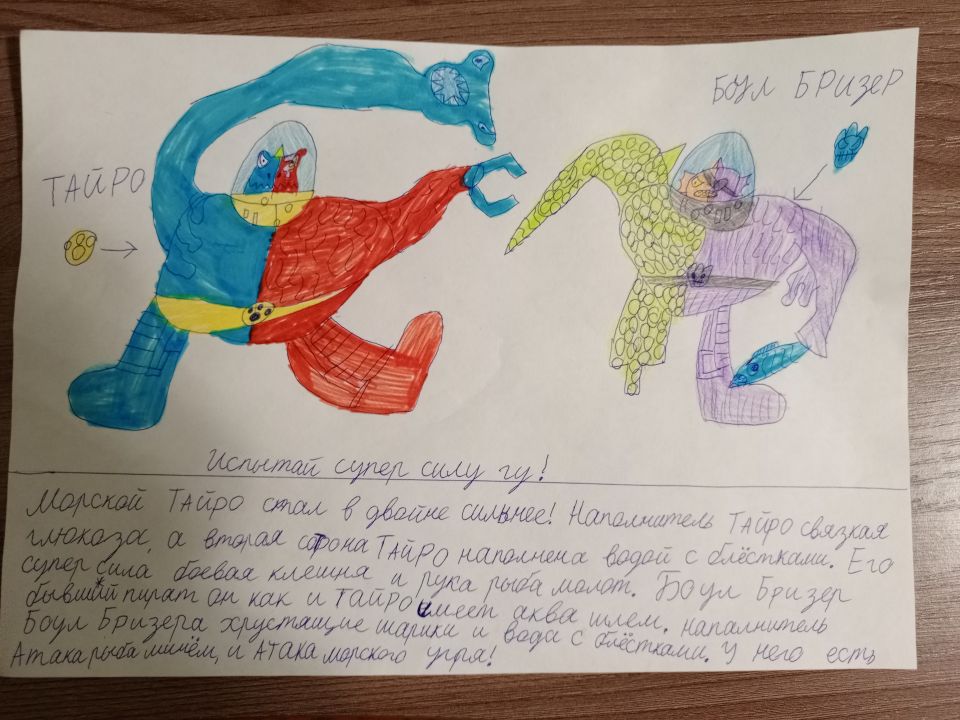 Боул Бризер
Тайро
Испытай супер силу гу!
Морской Тайро стал в двойне сильнее! Наполнитель Тайро связкая
глюкоза, а вторая сторона Тайро наполнена водой с блёстками. Его
супер сила боевая клешня и рука рыба молот. Боул Бризер
бывший пират он как и Тайро имеет аква шлем. наполнитель
Боул Бризера хрустящие шарики и вода с блёстками. У него есть
Атака рыба мичём, и Атака морского угря!